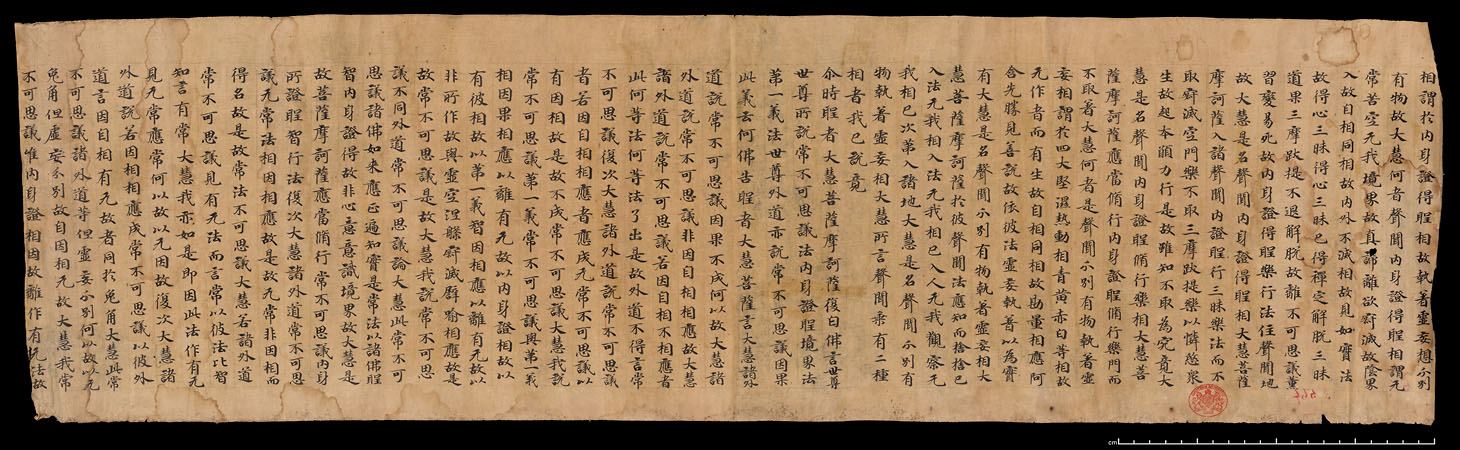 相謂於內身證得聖相故執著虛妄想分別
有物故大慧何者聲聞內身證得聖相謂无
常苦空无我境界故真諦離欲寂滅故陰界
入故自相同相故內外不滅相故見如實法
故得心三昧得心三昧已得禪定解脫三昧
道果三摩跋提不退解脫故離不可思議薰
習變易死故內身證得聖樂行法住聲聞地
故大慧是名聲聞內身證得聖相大慧菩薩
摩訶薩入諸聲聞內證聖行三昧樂法而不
取寂滅空門樂不取三摩跋提樂以憐愍衆
生故起本願力行是故雖知不取為究竟大
慧是名聲聞內身證聖行樂相大慧菩
薩摩訶薩應當脩行內身證聖脩行樂門而
不取著大慧何者是聲聞分別有物執著虛
妄相謂於四大堅濕熱動相青黃赤白等相故
无作者而有生故自相同相故勘量相應阿
含先勝見善說故依彼法虛妄執著以為實
有大慧是名聲聞分別有物執著虛妄相大
慧菩薩摩訶薩於彼聲聞法應知而捨捨已
入法无我相入法无我相已入人无我觀察无
我相已次第入諸地大慧是名聲聞分別有
物執著虛妄相大慧所言聲聞乘有二種
相者我已說竟
尒時聖者大慧菩薩摩訶薩復白佛言世尊
世尊所說常不可思議法內身證聖境界法
第一義法世尊外道亦說常不可思議因果
此義云何佛告聖者大慧菩薩言大慧諸外
道說常不可思議因果不成何以故大慧諸
外道說常不可思議非因自相相應故大慧
諸外道說常不可思議若因自相不相應者
此何等法何等法了出是故外道不得言常
不可思議復次大慧諸外道說常不可思議
者若因自相相應者應成无常不可思議以
有因相故是故不成常不可思議大慧我說
常不可思議第一義常不可思議與第一義
相因果相應以離有无故以內身證相故以
有彼相故以第一義智因相應以離有无故以
非所作故與虛空涅槃寂滅譬喻相應故是
故常不可思議是故大慧我說常不可思
議不同外道常不可思議論大慧此常不可
思議諸佛如來應正遍知實是常法以諸佛聖
智內身證得故非心意意識境界故大慧是
故菩薩摩訶薩應當脩行常不可思議內身
所證聖智行法復次大慧諸外道常不可思
議无常法相因相應故是故无常非因相而
得名故是故常法不可思議大慧若諸外道
常不可思議見有无法而言常以彼法比智
知言有常大慧我亦如是即因此法作有无
見无常應常何以故以无因故復次大慧諸
外道說若因相相應成常不可思議以彼外
道言因自相有无故者同於兔角大慧此常
不可思議諸外道等但虛妄分別何以故以无
兔角但虛妄分別故自因相无故大慧我常
不可思議唯內身證相因故離作有无法故
cm